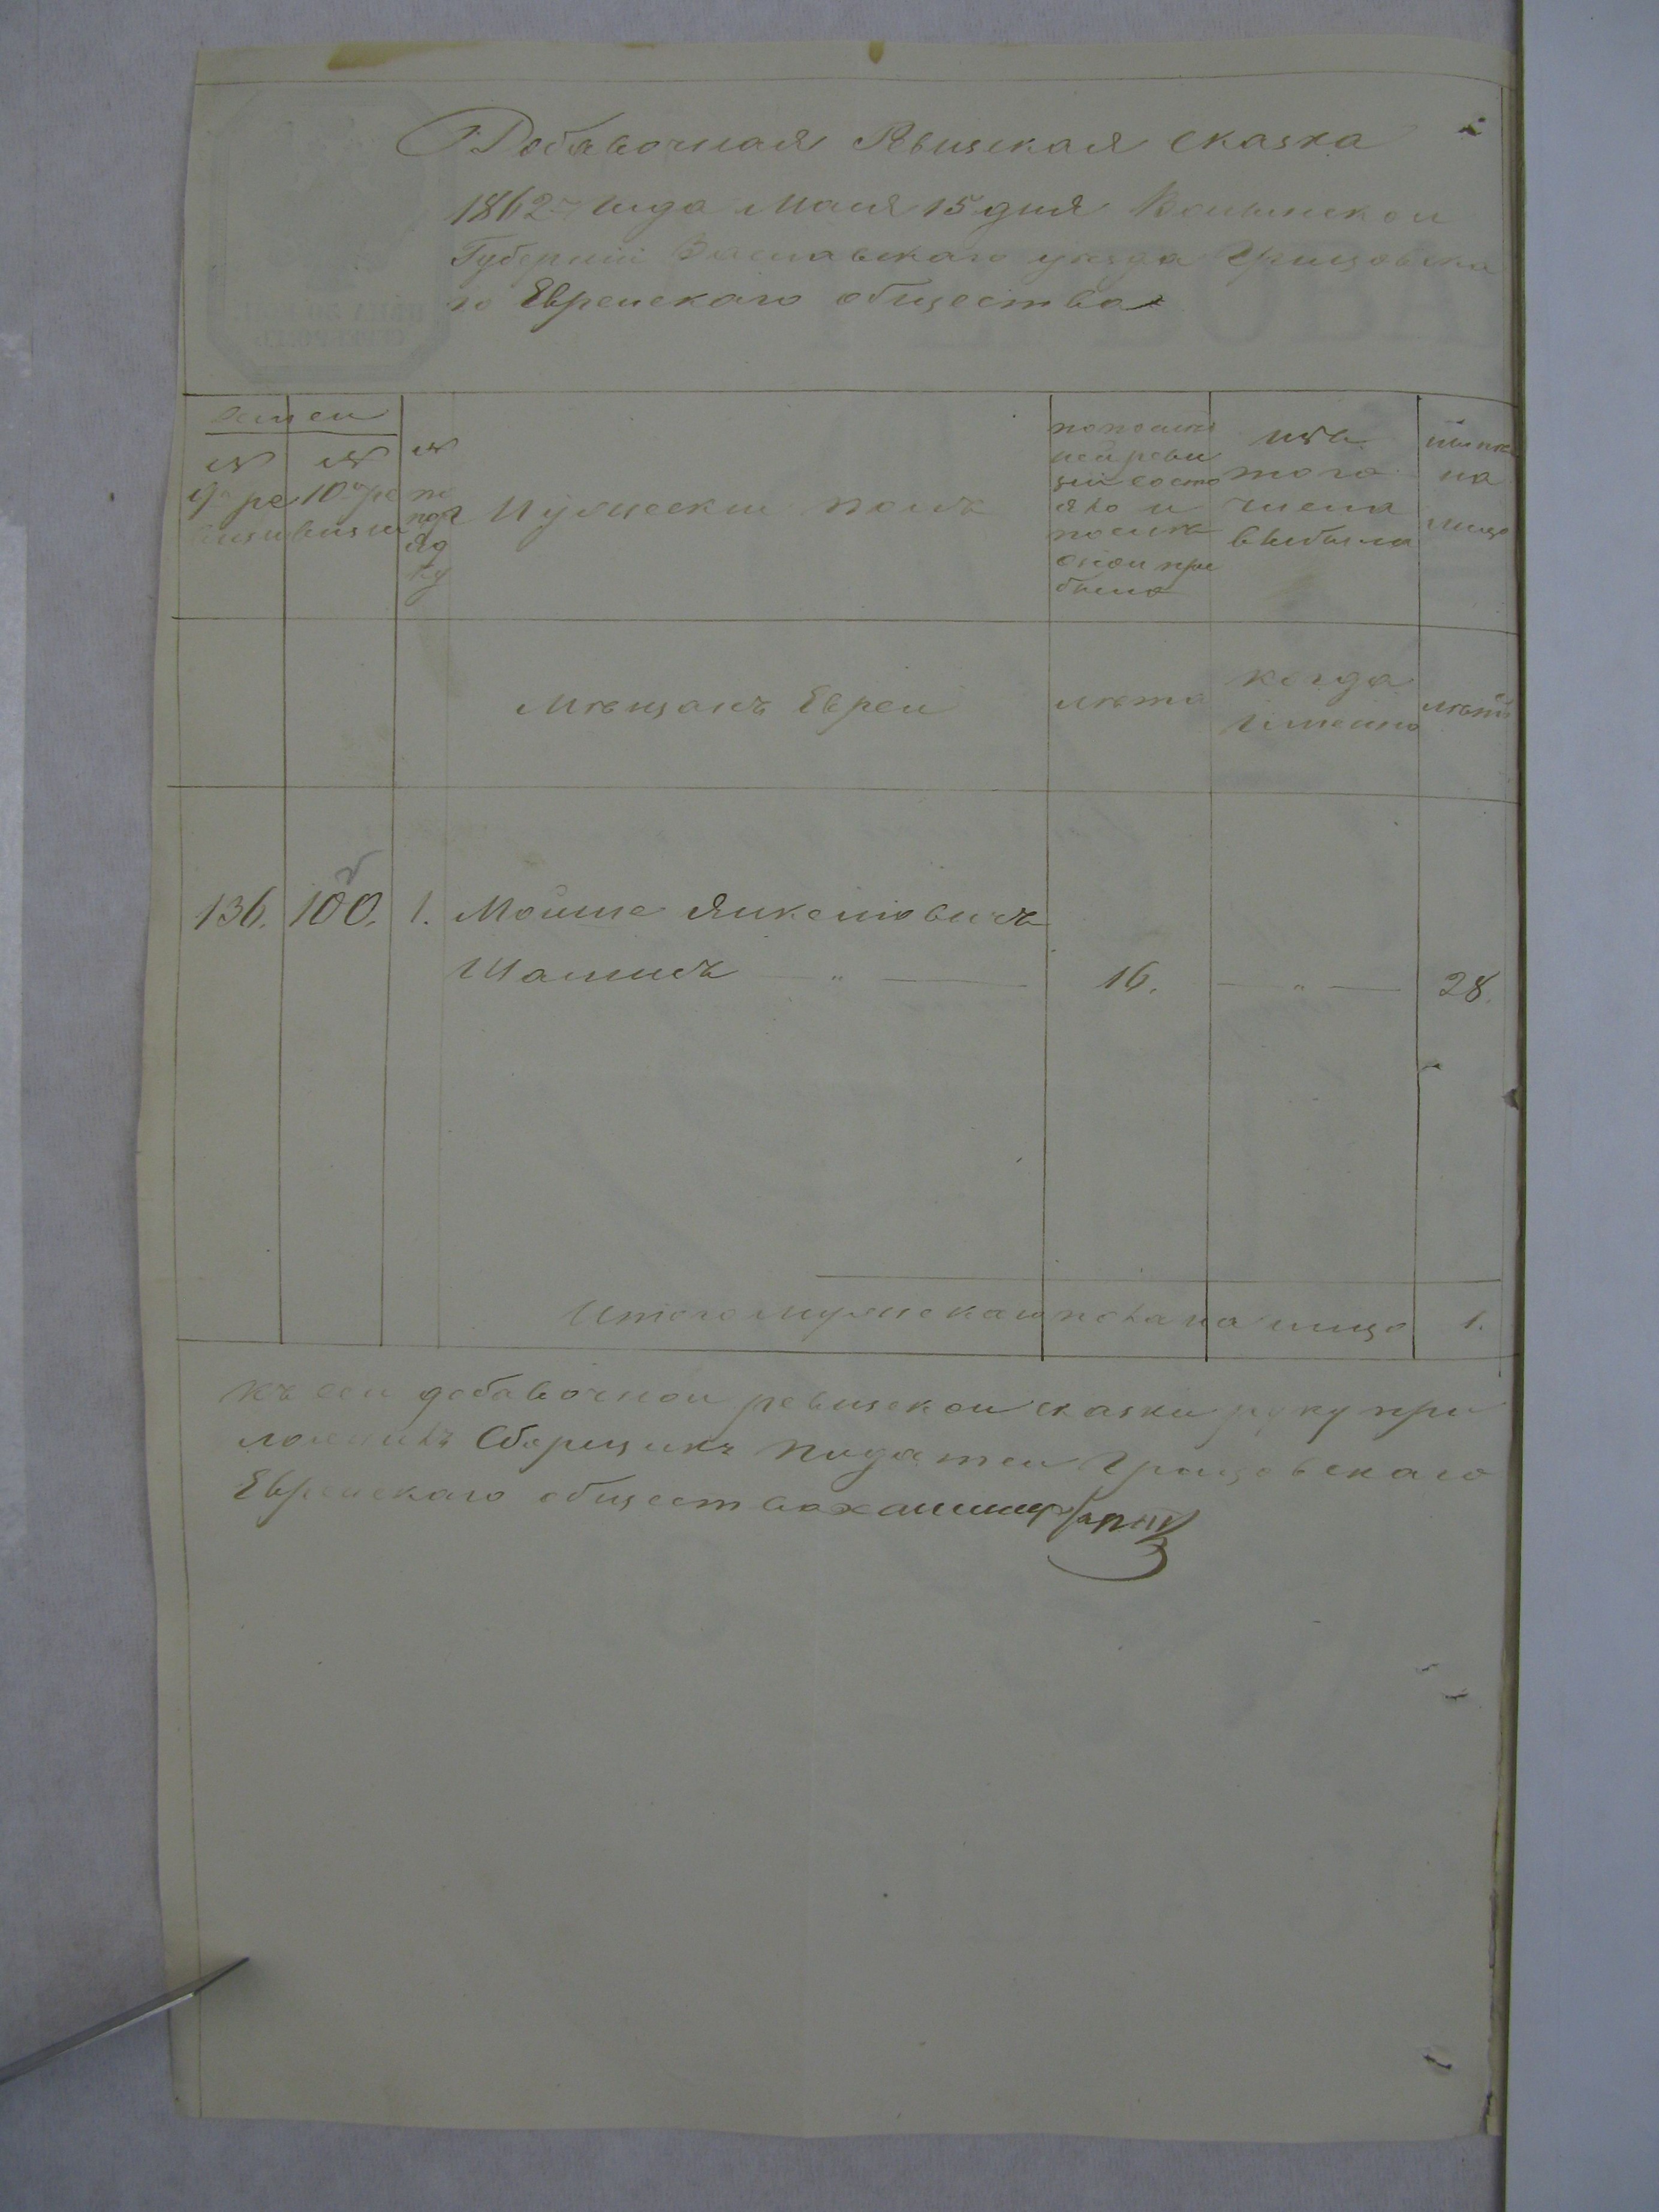 Добавочная Ревизская сказка
1862 года Маия 15 дня Волынской
Губернии Заславского уезда Грицовска
го Еврейского общества
№ 9й ре
визии
№ 10й ре
визии
№
по
пор
яд
ку
Мужеский полъ
по послѣд
ней реви
зіи состо
яло и
послѣ
оной при
было
изъ
того
числа
выбыло
нынѣ
на
лицо
Мѣщанъ Евреи
лѣта
когда
имянно
лѣта
136. 100. 1. Мойше Янкелiовичъ
Шамисъ — „ — 16. — „ — 28.
Итого мужескаго пола на лицо 1.
Къ сеи добавочнои ревизскои сказки руку при
ложилъ Сборщикъ податеи Грицовскаго
Евреискаго общества